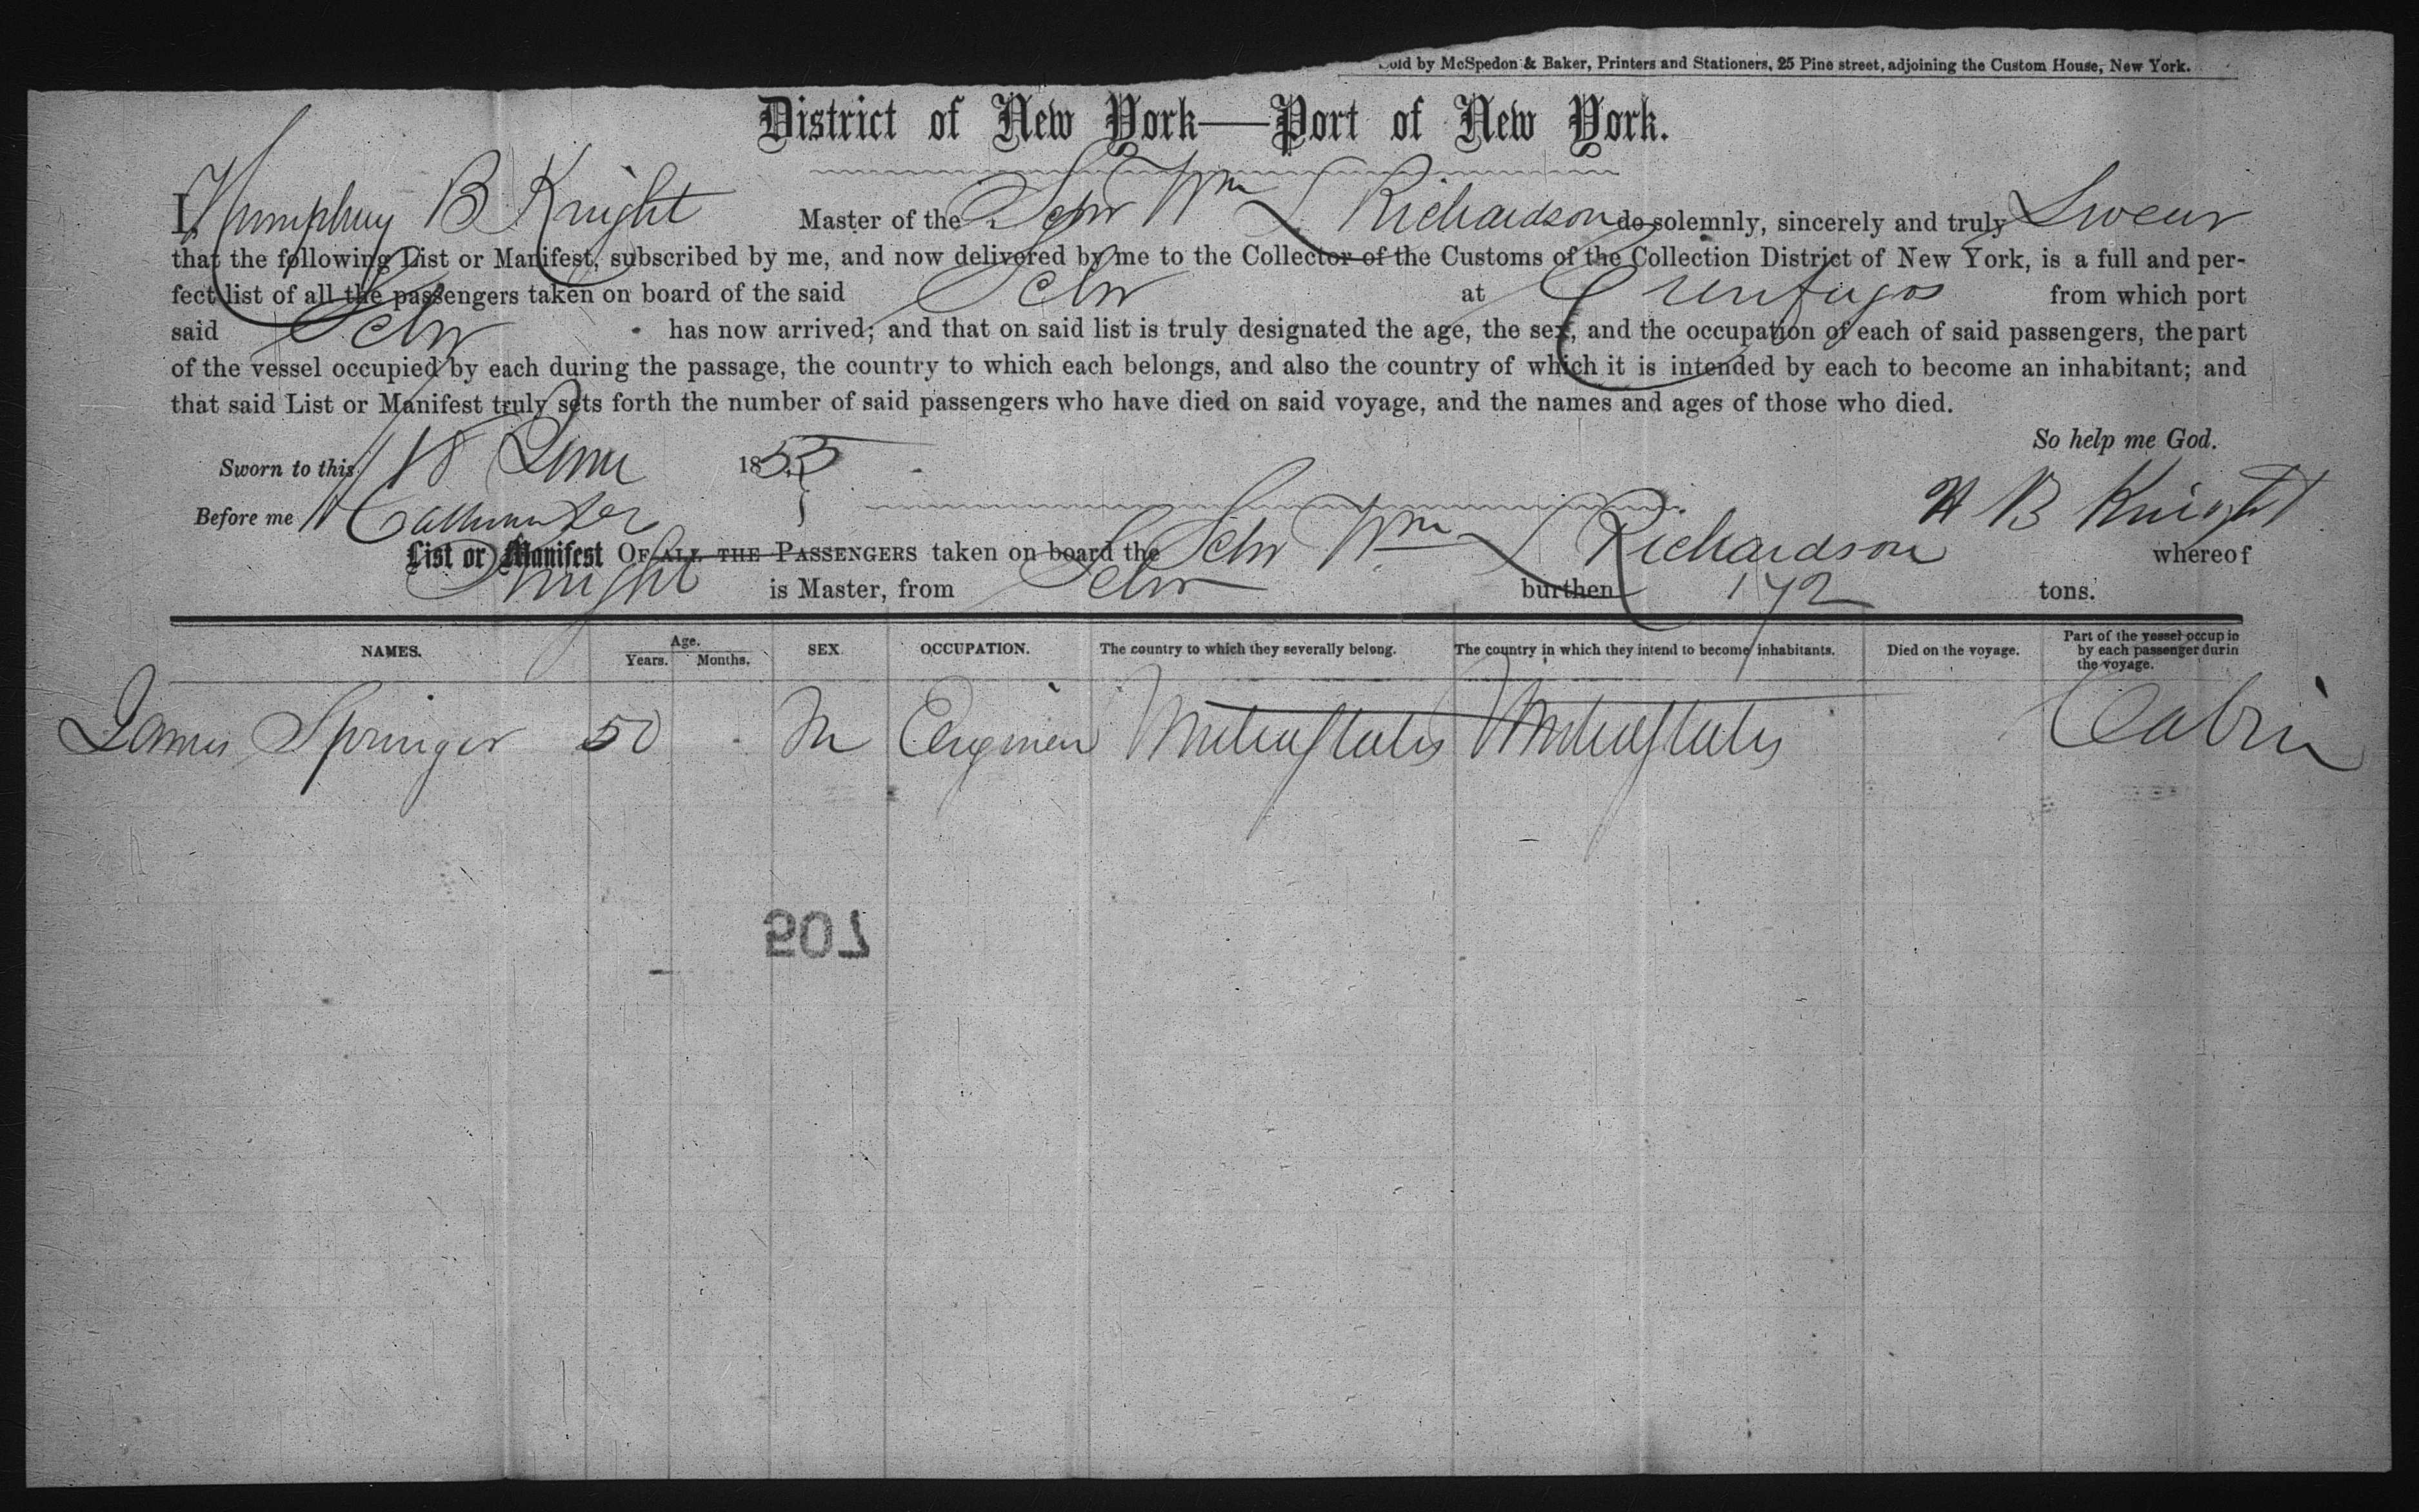 Sold by McSpedon & Baker, Printers and Stationers, 25 Pine street, adjoining the Custom House, New York.
District of New York—Port of New York.
I, Humphrey B Knight Master of the Schr Wm L Richardson do solemnly, sincerely and truly Swear
that the following List or Manifest, subscribed by me, and now delivered by me to the Collector of the Customs of the Collection District of New York, is a full and per-
fect list of all the passengers taken on board of the said Schr at Cienfugos from which port
said Schr has now arrived; and that on said list is truly designated the age, the sex, and the occupation of each of said passengers, the part
of the vessel occupied by each during the passage, the country to which each belongs, and also the country of which it is intended by each to become an inhabitant; and
that said List or Manifest truly sets forth the number of said passengers who have died on said voyage, and the names and ages of those who died.
So help me God.
Sworn to this 18 June 1855
Before me H B Knight
List or Manifest OF ALL THE PASSENGERS taken on board the Schr Wm L Richardson whereof
Knight is Master, from Schr burthen 172 tons.
NAMES. Age. Years. Months. SEX. OCCUPATION. The country to which they severally belong. The country in which they intend to become inhabitants. Died on the voyage. Part of the vessel occupie by each passenger durin the voyage.
James Springer 50 M Engineer United States United States Cabin
507